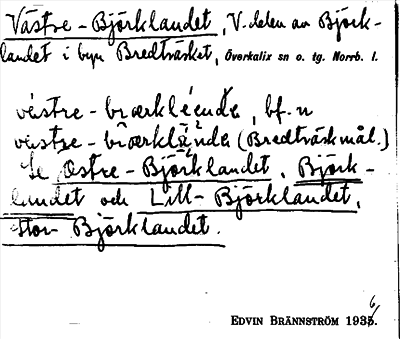 Västre-Björklandet, V. delen av Björk-
landet i byn Bredträsket, Överkalix sn o. tg. Norrb. l.
västre-bræklænda, bf. n
västre-bræklænda (Bredträskmål.)
Se Östre-Björklandet, Björk-
landet och Lill-Björklandet,
Stor-Björklandet.
EDVIN BRÄNNSTRÖM 1936.